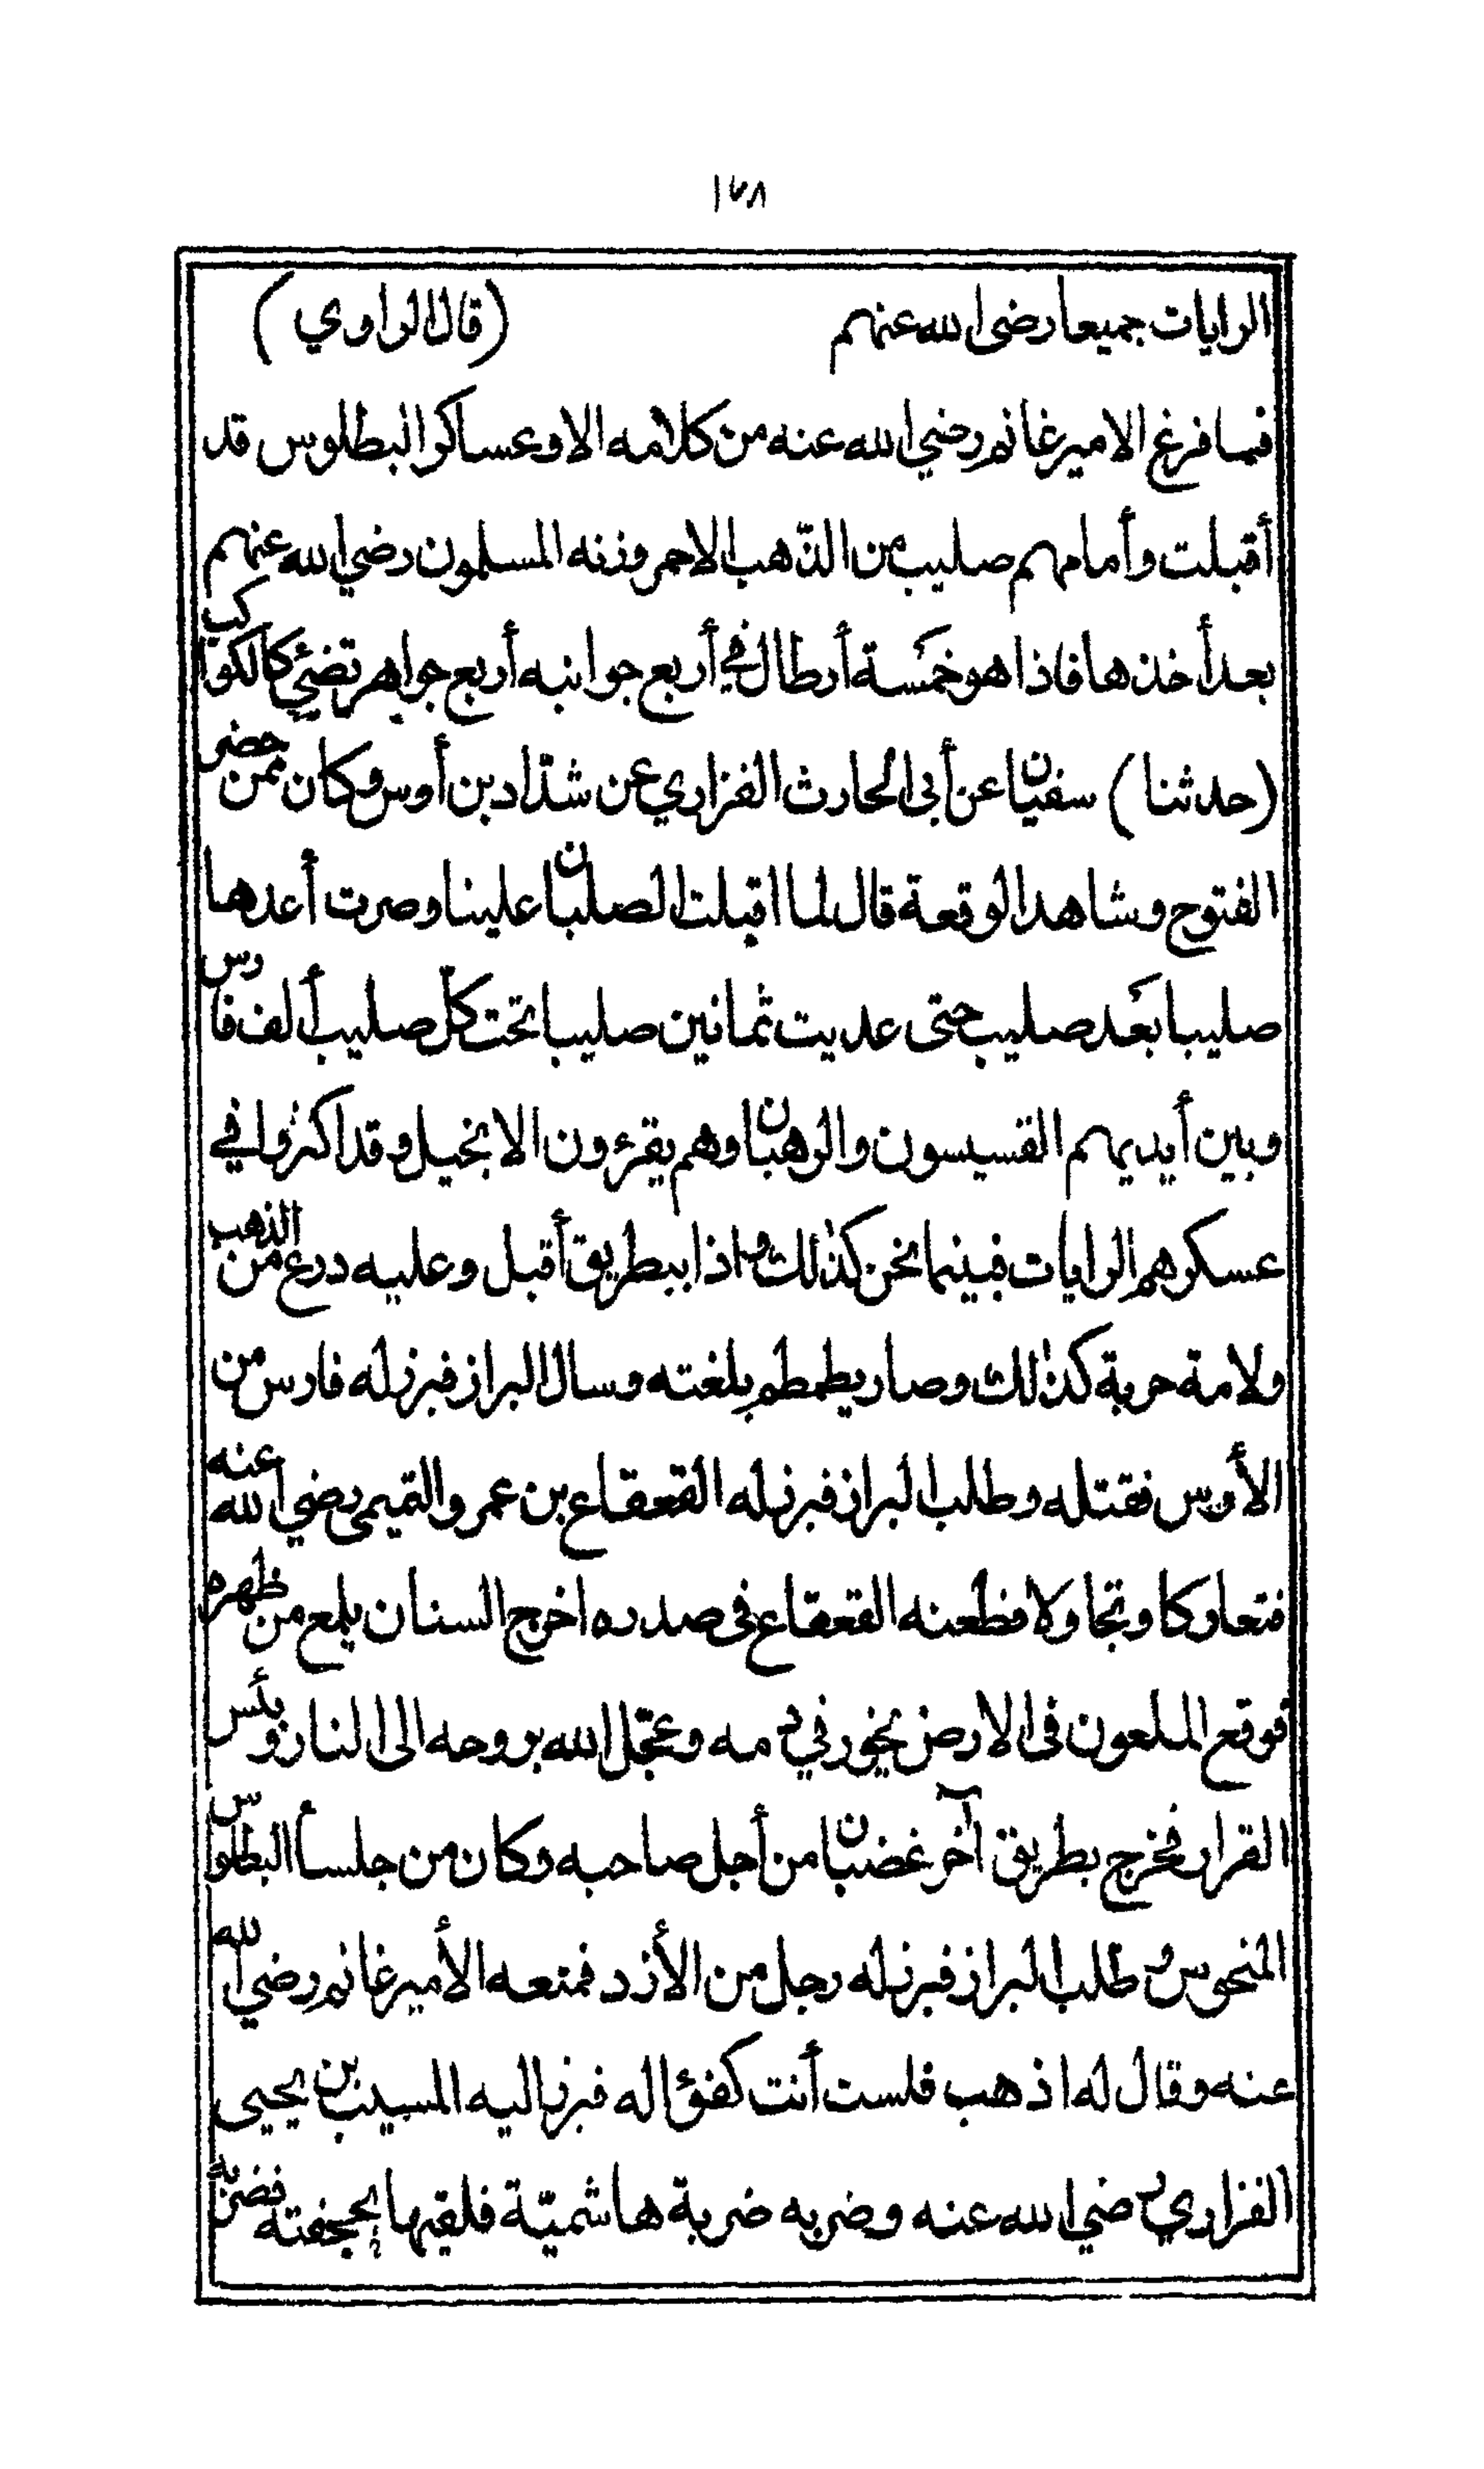 ١٧٨
الرايات جميعا رضى الله عنهم (قال الراوي)
فما فرغ الامير غانم رضي الله عنه من كلامه الا وعساكر البطلوس قد
أقبلت وأمامهم صليب من الذّهب الاحمر وزنه المسلمون رضي الله عنهم
بعد أخذها فاذا هو خمَسة أرطال في أربع جوانبه أربع جواهر تضئي كالكواكب
(حدثنا) سفيان عن أبى الحارث الفزاري عن شدّاد بن أوس وكان ممن حضى
الفتوح وشاهد الوقعة قال لما اقبلت الصلبان علينا وصرت أعدها
صليبا بعَد صليب حتى عديت ثمانين صليبا تحت كل صليب ألف فارس
وبين أيديهم القسيسون والرهبان وهم يقرءون الانجيل وقد اكثروا في
عسكرهم الرايات فبينما نحن كذلك واذا ببطريق أقبل وعليه درع من الذهب
ولامة حربة كذلك وصار يطمطم بلغته وسال البراز فبرز له فارس من
الأوس فقتله وطلب البراز فبرز له القعقاع بن عمرو التميمى رضي الله عنه
فتعاركا وتجاولا فطعنه القعقاع فى صدره اخرج السنان يلمع من ظهره
فوقع الملعون فى الارض يخور في دمه وعجّل الله بروحه الى النار وبئس
القرار فخرج بطريق آخر غضبان من أجل صاحبه وكان من جلساُ البطلوس
المنحوس وطلب البراز فبرز له رجل من الأزد فمنعه الأمير غانم رضي الله
عنه وقال له اذهب فلست أنت كفؤا له فبرز اليه المسيب بن يحيى
الفزاري رضي الله عنه وضربه ضربة هاشميّة فلقيها بحجفته فضربه